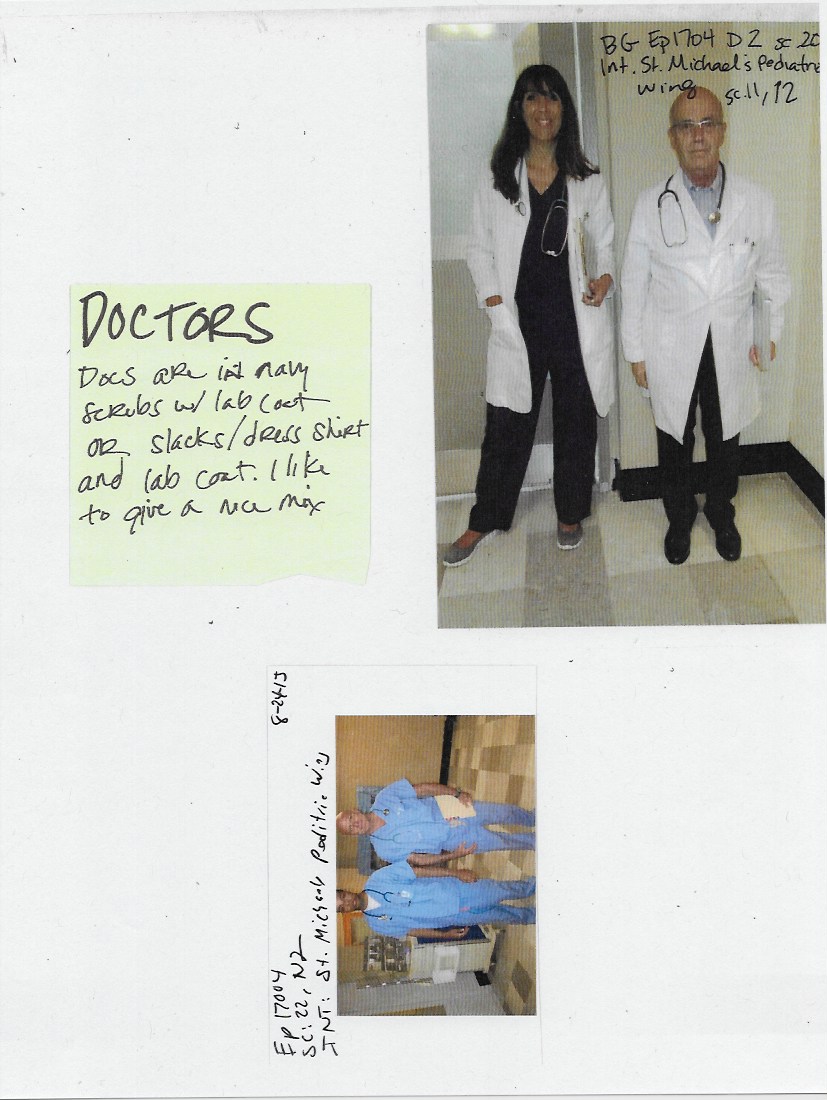 BG Ep1704 D2 sc 20
Int. St. Michael's Pediatric
wing sc.11, 12
DOCTORS
Docs are in navy
scrubs w/ lab coat
or slacks/dress shirt
and lab coat. I like
to give a nice mix
8-24-15
Ep 17004
SC: 22, N2
INT: St. Michaels Peditric Wing